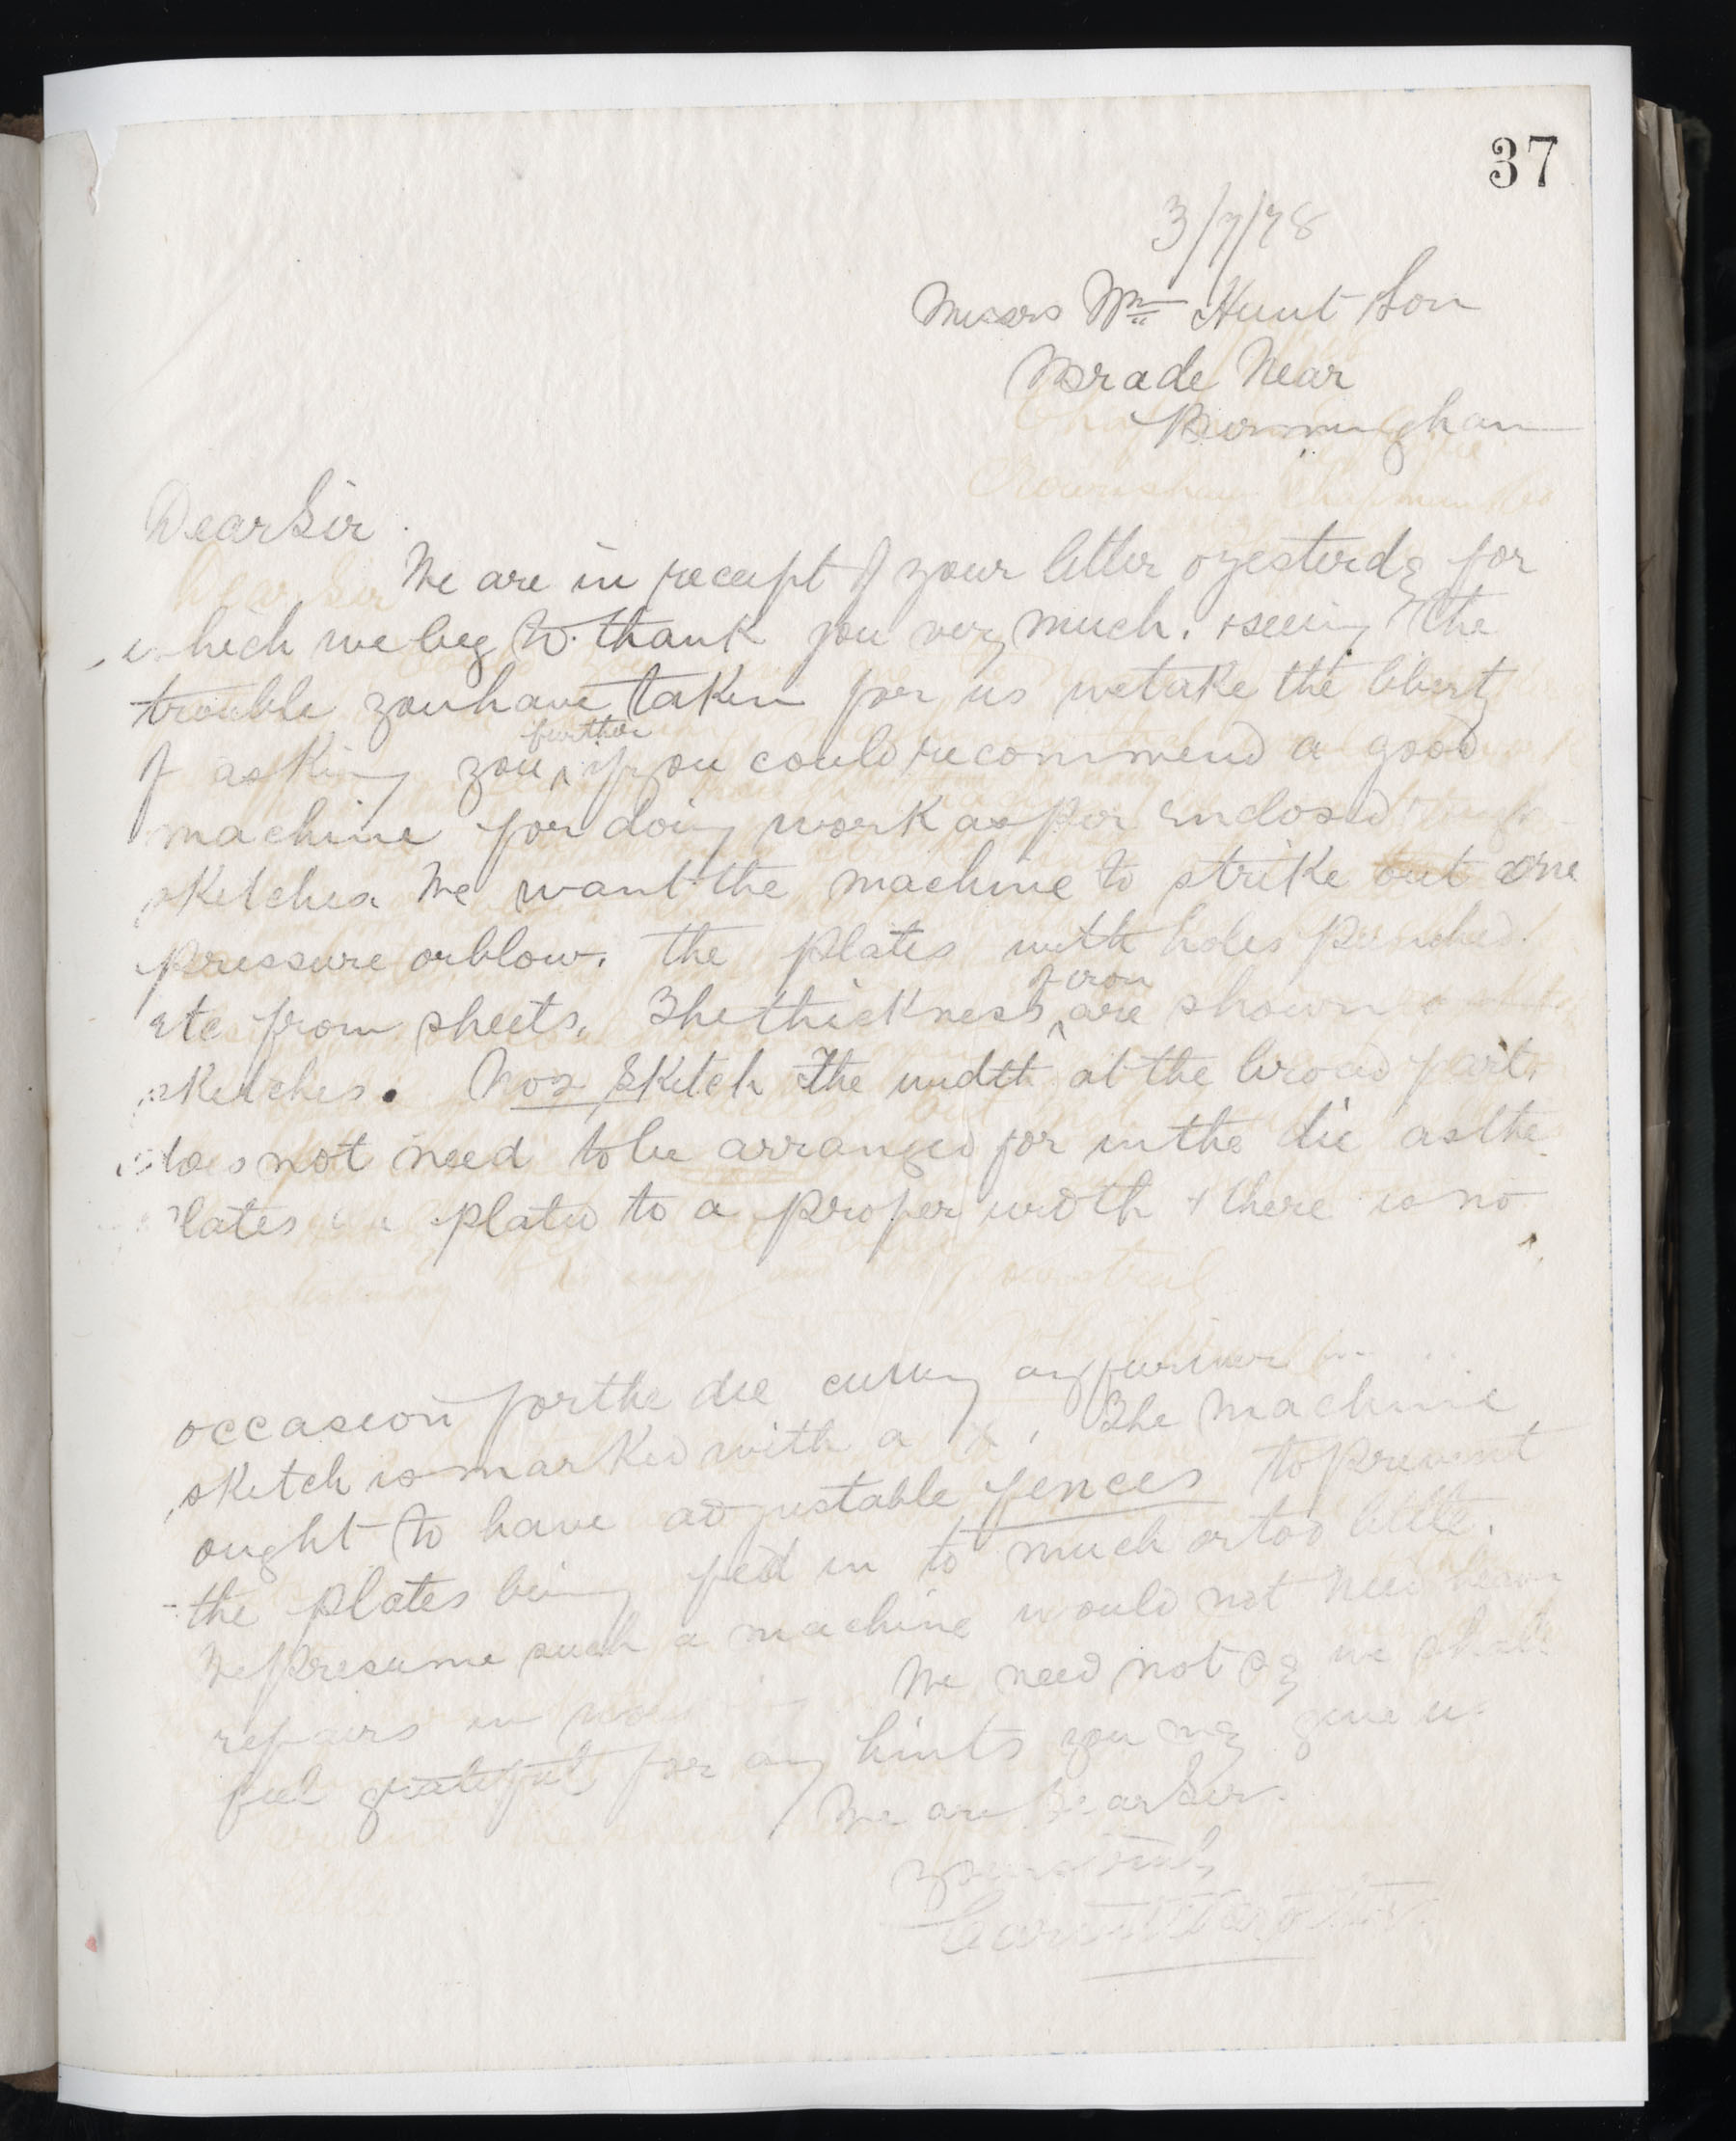 37
3/7/78
Messrs Wm Hunt Son
Brade Near
Birmingham
Dear Sir
We are in receipt of your letter oyesterdy for
which we beg to thank you very much. & seeing the
trouble you have taken for us we take the liberty
of asking you further if you could recommend a good
machine for doing work as per Enclosed
sketches We want the machine to strike out one
pressure or blow. the plates with holes punched.
etc from sheets. The thickness of iron are shown
sketches. No 2 Sketch The width at the broad part
does not need to be arranged for in the die as the
plates plated to a proper width & there is no
occasion for the die cutting any further
sketch is marked with a X. The Machine
ought to have adjustable fences to prevent
the plates being fed in to much or too little.
We presume such a machine would not need heavy
repairs in We need not sy we shall
feel grateful for any hints you my give us
We are Dear Sir.
yours truly